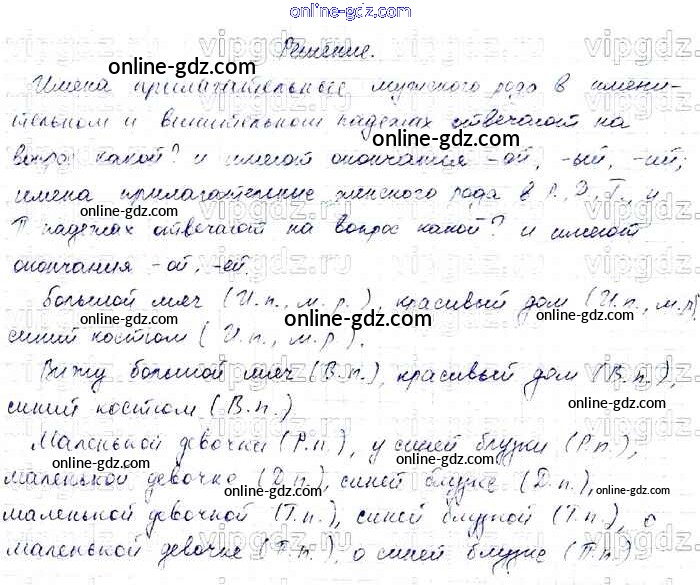 online-gdz.com
Решение.
online-gdz.com
Имена прилагательные мужского рода в имени-
тельном и винительном падежах отвечают на
online-gdz.com
вопрос какой? и имеют окончания -ой, -ый, -ий;
online-gdz.com
имена прилагательные женского рода в Р., Д., Т., и
online-gdz.com
П падежах отвечают на вопрос какой? и имеют
online-gdz.com
окончания -ой, -ей.
Большой мяч (И.п., м.р.), красивый дом (И.п., м.р.)
online-gdz.com online-gdz.com online-gdz.com
синий костюм (И.п., м.р.).
Вижу большой мяч (В.п.), красивый дом (В.п.),
online-gdz.com online-gdz.com
синий костюм (В.п.)
online-gdz.com
Маленькой девочки (Р.п.), у синей блузки (Р.п.),
online-gdz.com
маленькой девочке (Д.п.), синей блузке (Д.п.),
online-gdz.com online-gdz.com
маленькой девочкой (Т.п.), синей блузкой (Т.п.), о
online-gdz.com
маленькой девочке (П.п.), о синей блузке (П.п.)
online-gdz.com